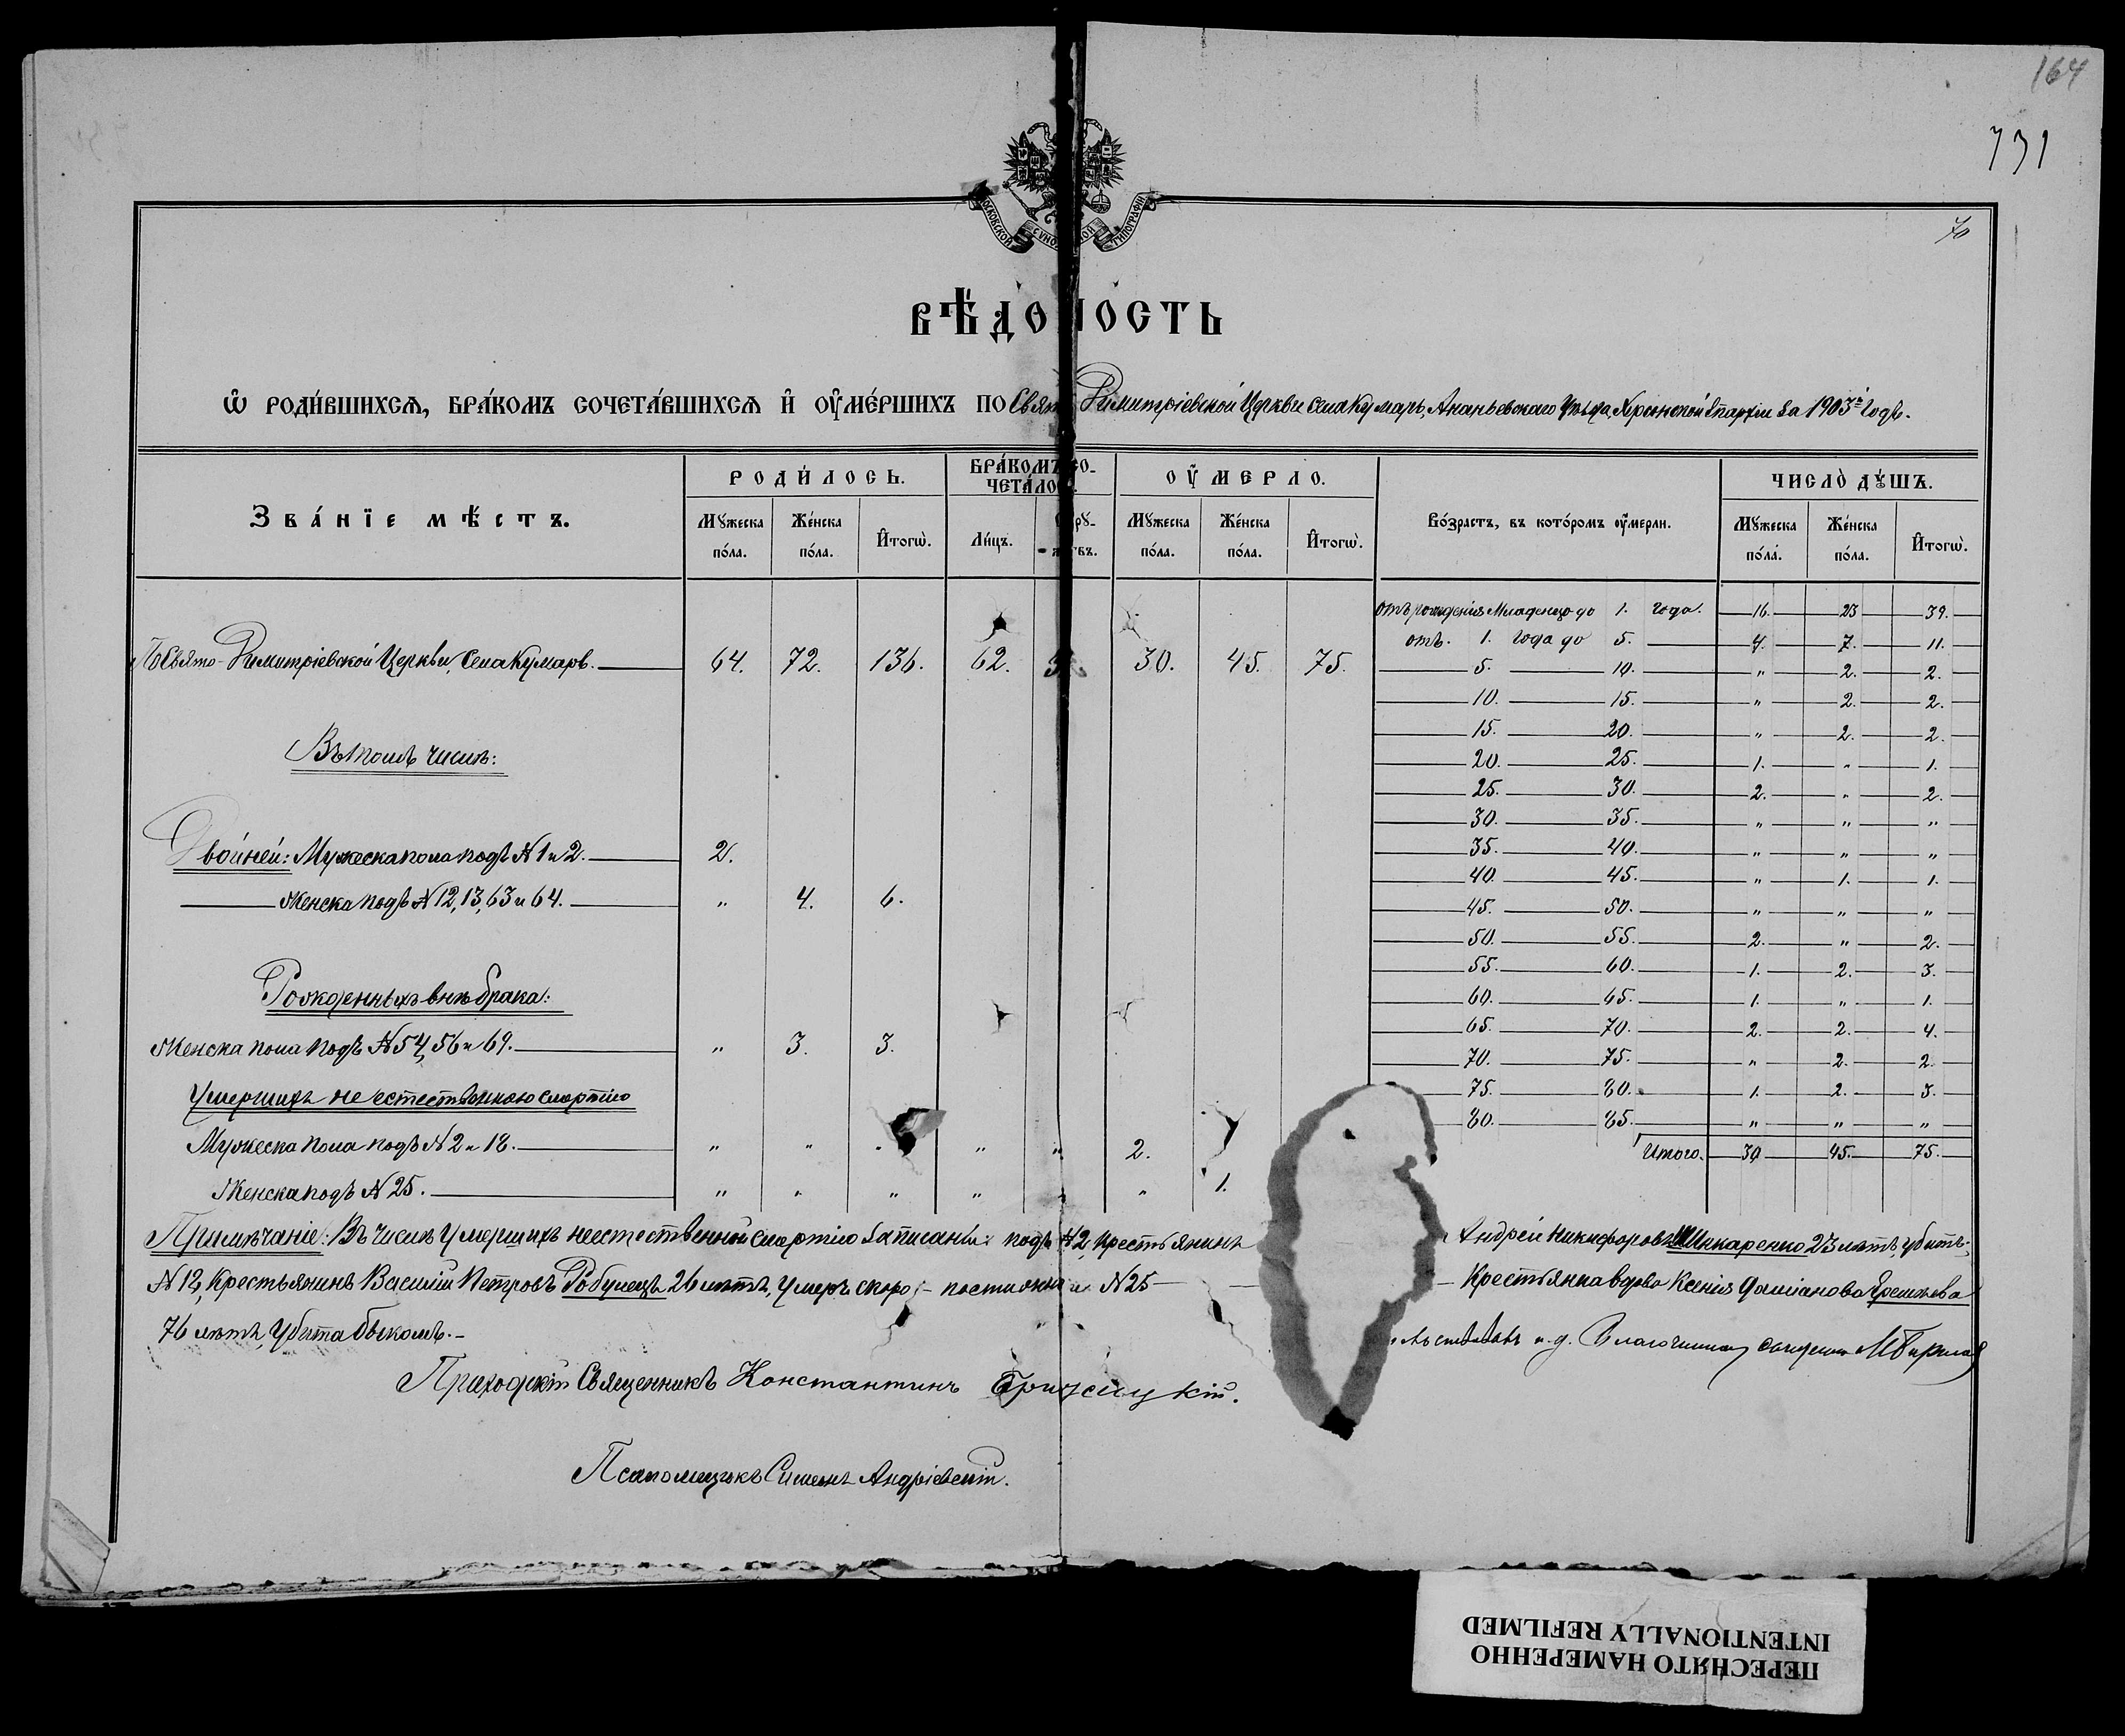 164
731
70
МОСКОВСКОЙ СѴНОДАЛЬНОЙ ТИПОГРАФІИ
ВѢДОМОСТЬ
Ѡ РОДИ́ВШИХСѦ, БРА́КОМЪ СОЧЕТА́ВШИХСѦ И҆ ОУ҆МЕ́РШИХЪ ПО Свято Димитріевской Церкви села Кумаръ, Ананьевскаго Уѣзда, Херсонской Епархіи за 1903й Годъ.
Зва́нїе мѣ́стъ. РОДИ́ЛОСЬ. БРА́КОМЪ СО- ЧЕТА́ЛО ОУ҆МЕРЛО. Во́зрастъ, въ кото́ромъ оу҆́мерли. ЧИСЛО̀ ДꙊ́ШЪ.
Мꙋ́жеска по́ла. Же́нска по́ла. И҆тогѡ̀. Ли́цъ. Мꙋ́жеска по́ла. Же́нска по́ла. И҆тогѡ̀. Мꙋ́жеска по́ла. Же́нска по́ла. И҆тогѡ̀.
По Свято-Димитріевской Церкви, Села Кумаръ. 64. 72. 136. 62. 30. 45. 75.
Въ томъ числѣ:
Двойней: Мужеска пола подъ № 1 и 2. 2.
Женска подъ № 12, 13, 63 и 64. " 4. 6.
Рожденныхъ внѣ брака:
Женска пола подъ № 54, 56 и 69. " 3. 3.
Умершихъ не естественною смертію
Мужеска пола подъ № 2 и 18. " " " " " 2.
Женска подъ № 25. " " " " " " 1.
отъ рожденія Младенцо до 1. года. 16. 23 39.
отъ 1. года до 5. 4. 7. 11.
5. 10. " 2. 2.
10. 15. " 2. 2.
15. 20. " 2. 2.
20. 25. 1. " 1.
25. 30. 2. " 2.
30. 35. " " "
35. 40. " " "
40. 45. " 1. 1.
45. 50. " " "
50. 55. 2. " 2.
55. 60. 1. 2. 3.
60. 65. 1. " 1.
65. 70. 2. 2. 4.
70. 75. " 2. 2.
75. 80. 1. 2. 3.
80. 85. " " "
Итого. 30 45. 75.
Примѣчаніе: Въ числѣ Умершихъ неестественной смертію записаны: подъ № 2 Крестьянинъ Андрей Никифоровъ Шинкаренко 23 лѣтъ, убитъ;
Крестьянинъ Василій Петровъ Робулецъ 26 лѣтъ, Умеръ скоропостижно и № 25 Крестьянка вдова Ксенія Даміанова Еремѣева
76 лѣтъ, Убита быкомъ.-
и. д. Благочиннаго священникъ
Приходскій Священникъ Константинъ
Псаломщикъ Симеонъ Андріевскій.
ПЕРЕСНЯТО НАМЕРЕННО
INTENTIONALLY REFILMED